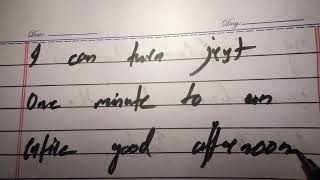 Date: Day:
I can turn just
One minute to an
entire good afternoon